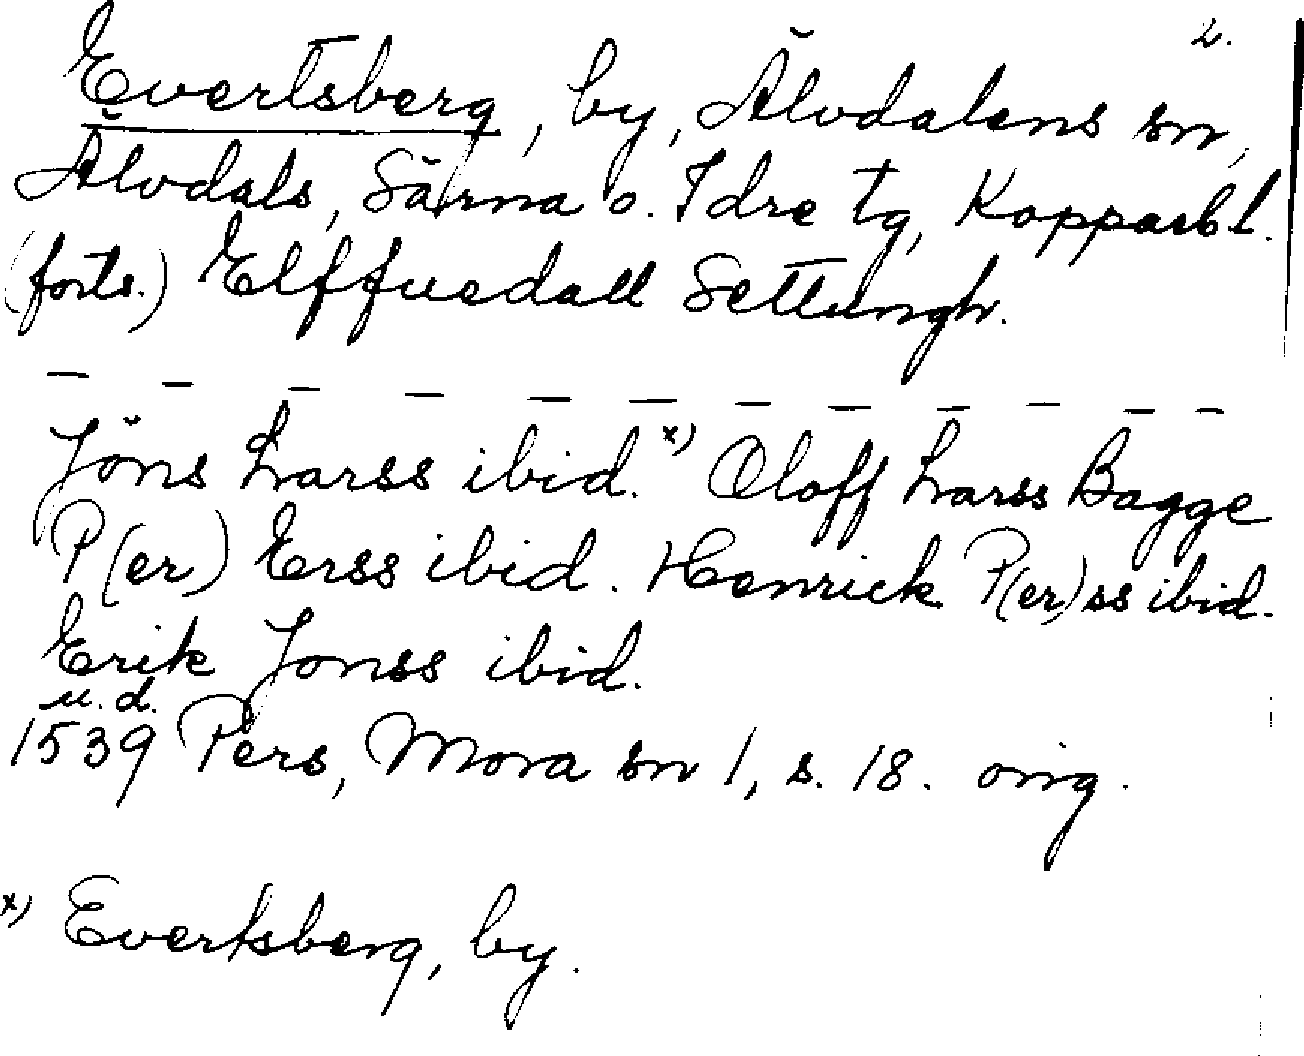 2.
Evertsberg, by, Älvdalens sn,
Älvdals, Särna o. Idre tg, Kopparb l.
(forts.) Elffuedall Settungh.
— — — — — — — — — — — —
Jöns Larss ibid. x) Oloff Larss Bagge
P(er) Erss ibid. Henrick P(er)ss ibid.
Erik Jonss ibid.
u.d.
1539 Pers, Mora sn 1, s. 18. orig.
x) Evertsberg, by.